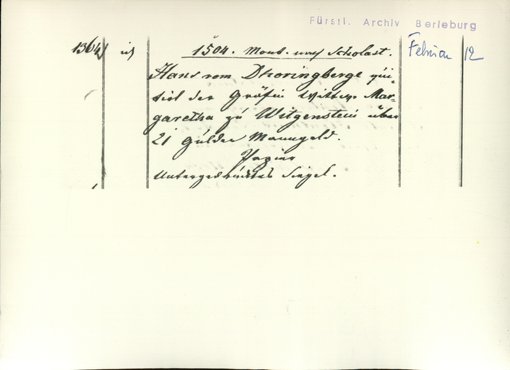 Fürstl. Archiv Berleburg
1364
1504. Mont. nach Scholast.
Februar 12
Hans vom Dhoringberge quit-
tirt der Gräfin Wittwe Mar-
garetha zu Witgenstein über
21 Gulden Manngeld.
Papier
Untergedrücktes Siegel.